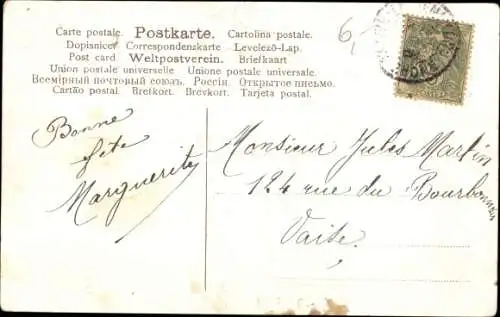 Carte postale. Postkarte. Cartolina postale.
Dopisnice. Correspondenzkarte - Levelező-Lap.
Post card Weltpostverein. Briefkaart
Union postale universelle. Unione postale universale.
Всемірный почтовый союзъ. Россія. Открытое письмо.
Cartão postal. Brefkort. Brevkort. Tarjeta postal.
6
Bonne
fête
Marguerite
Monsieur Jules Martin
124 rue du Bourbonnais
Vaise.